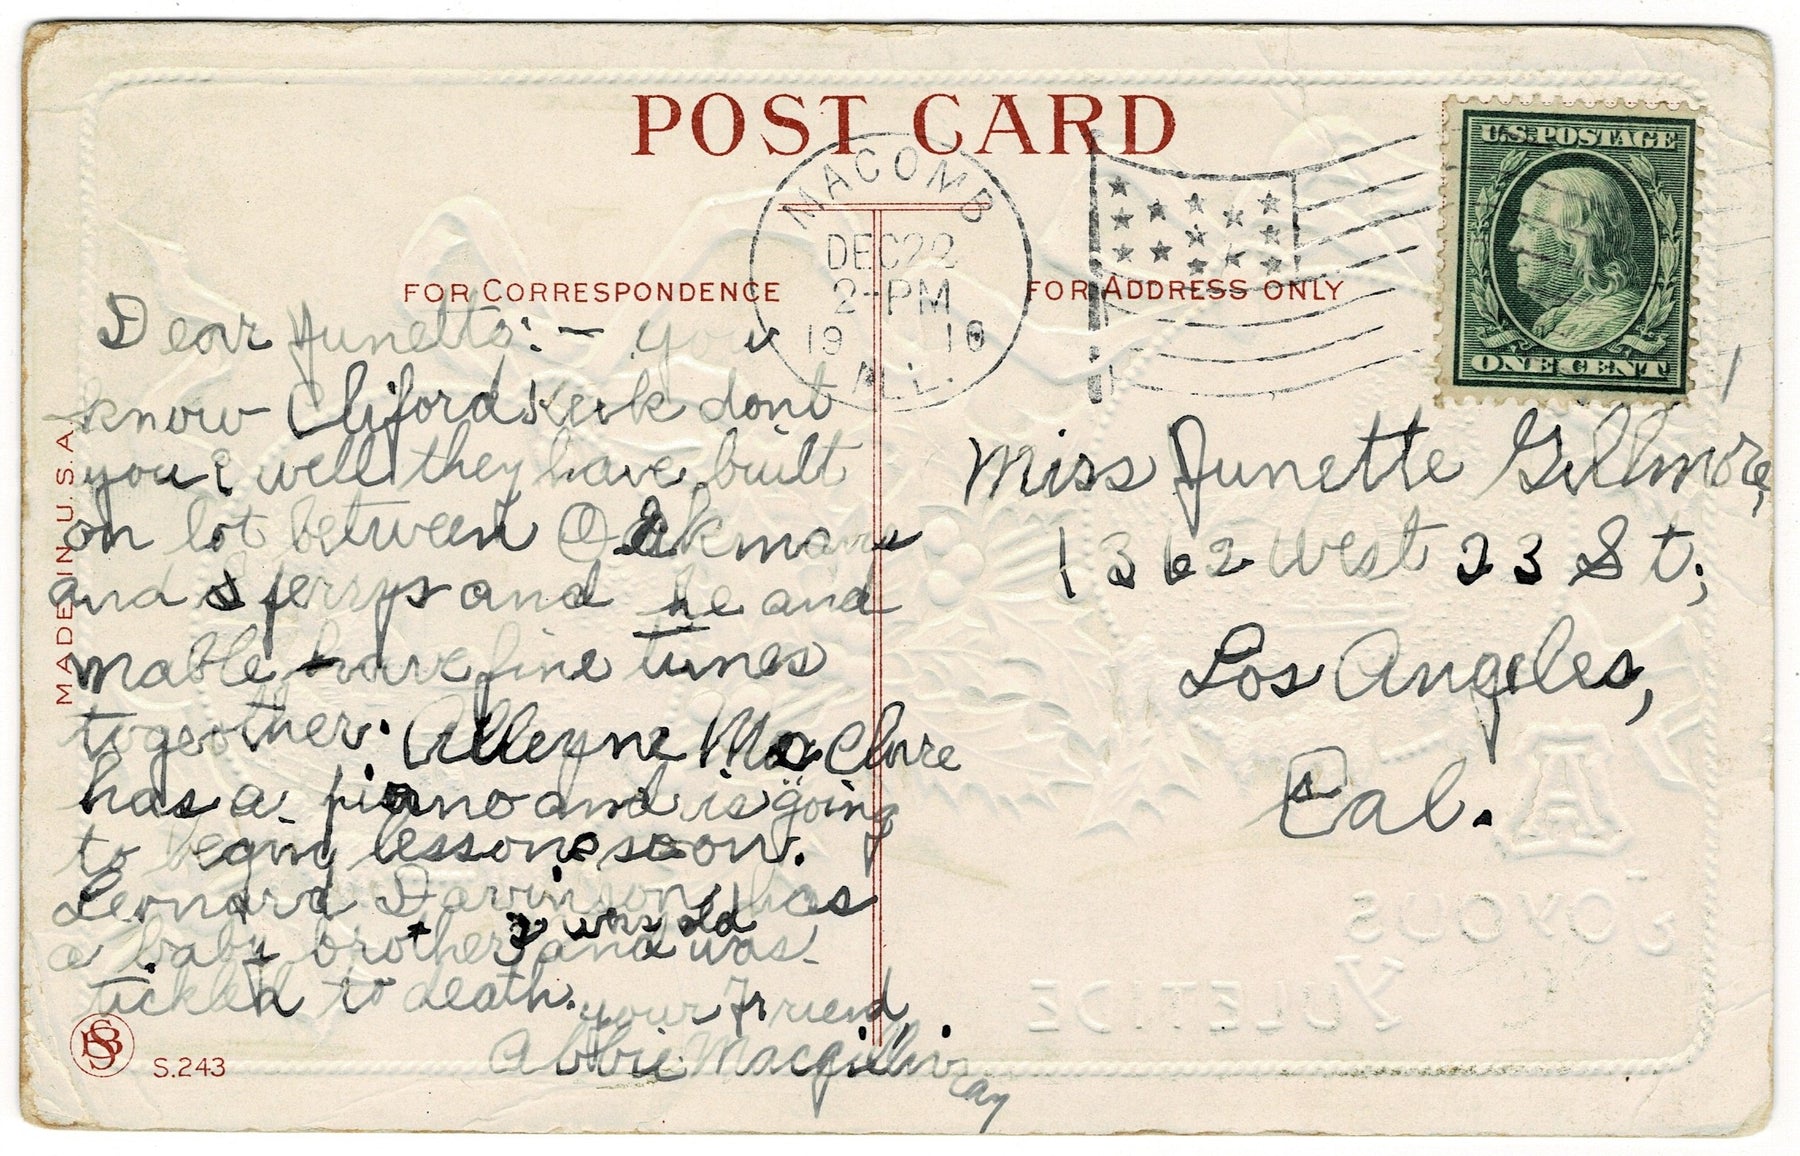 POST CARD
MACOMB
DEC 22
2-PM
1910
ILL.
U.S. POSTAGE
ONE CENT
FOR CORRESPONDENCE
FOR ADDRESS ONLY
MADE IN U.S.A.
Dear Junette:- You
know Cliford Kerk dont
you? well they have built
on lot between
and Sperrys and he and
mable have fine times
together. Alleyne MacClure
has a piano and is going
to begin lessons soon.
Leonard Davinson has
a baby brother and was
tickled to death.
your Friend,
Abbie Macgillivray
Miss Junette Gillmore,
1362 West 23 St.,
Los Angeles,
Cal.
A
JOYOUS
YULETIDE
SB
S.243